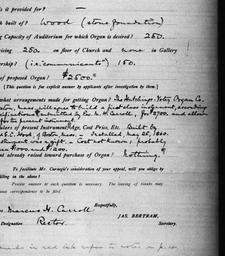 is it provided for? —
ch built of? wood (stone foundation)
g Capacity of Auditorium for which Organ is desired? 250.
rising 250 on floor of Church and none in Gallery
ership? (i.e. communicants) 150.
of proposed Organ? $2500.
(This question is for explicit answer by applicants after investigation by them.)
what arrangements made for getting Organ? The Hutchings-Votey Organ Co.
Mass. will agree to build a first-class instrument, according
specifications submitted by Rev. M. H. Carroll, for $2500. and allow
for its present instrument.
culars of present Instrument, Age, Cost Price, Etc. Built by
E. & G. Hook, of Boston, Mass. - Installed, May 26, 1860.
instrument was a gift. - Cost not known; probably
between $1000 and $1200.
nt already raised toward purchase of Organ? Nothing.
To facilitate Mr. Carnegie's consideration of your appeal, will you oblige by
filling in the above?
Precise answer to each question is necessary. The leaving of blanks may
cause correspondence to be filed.
Respectfully,
Marcus H. Carroll
JAS. BERTRAM,
Designation Rector. Secretary.
in red ink refer to notes on p.